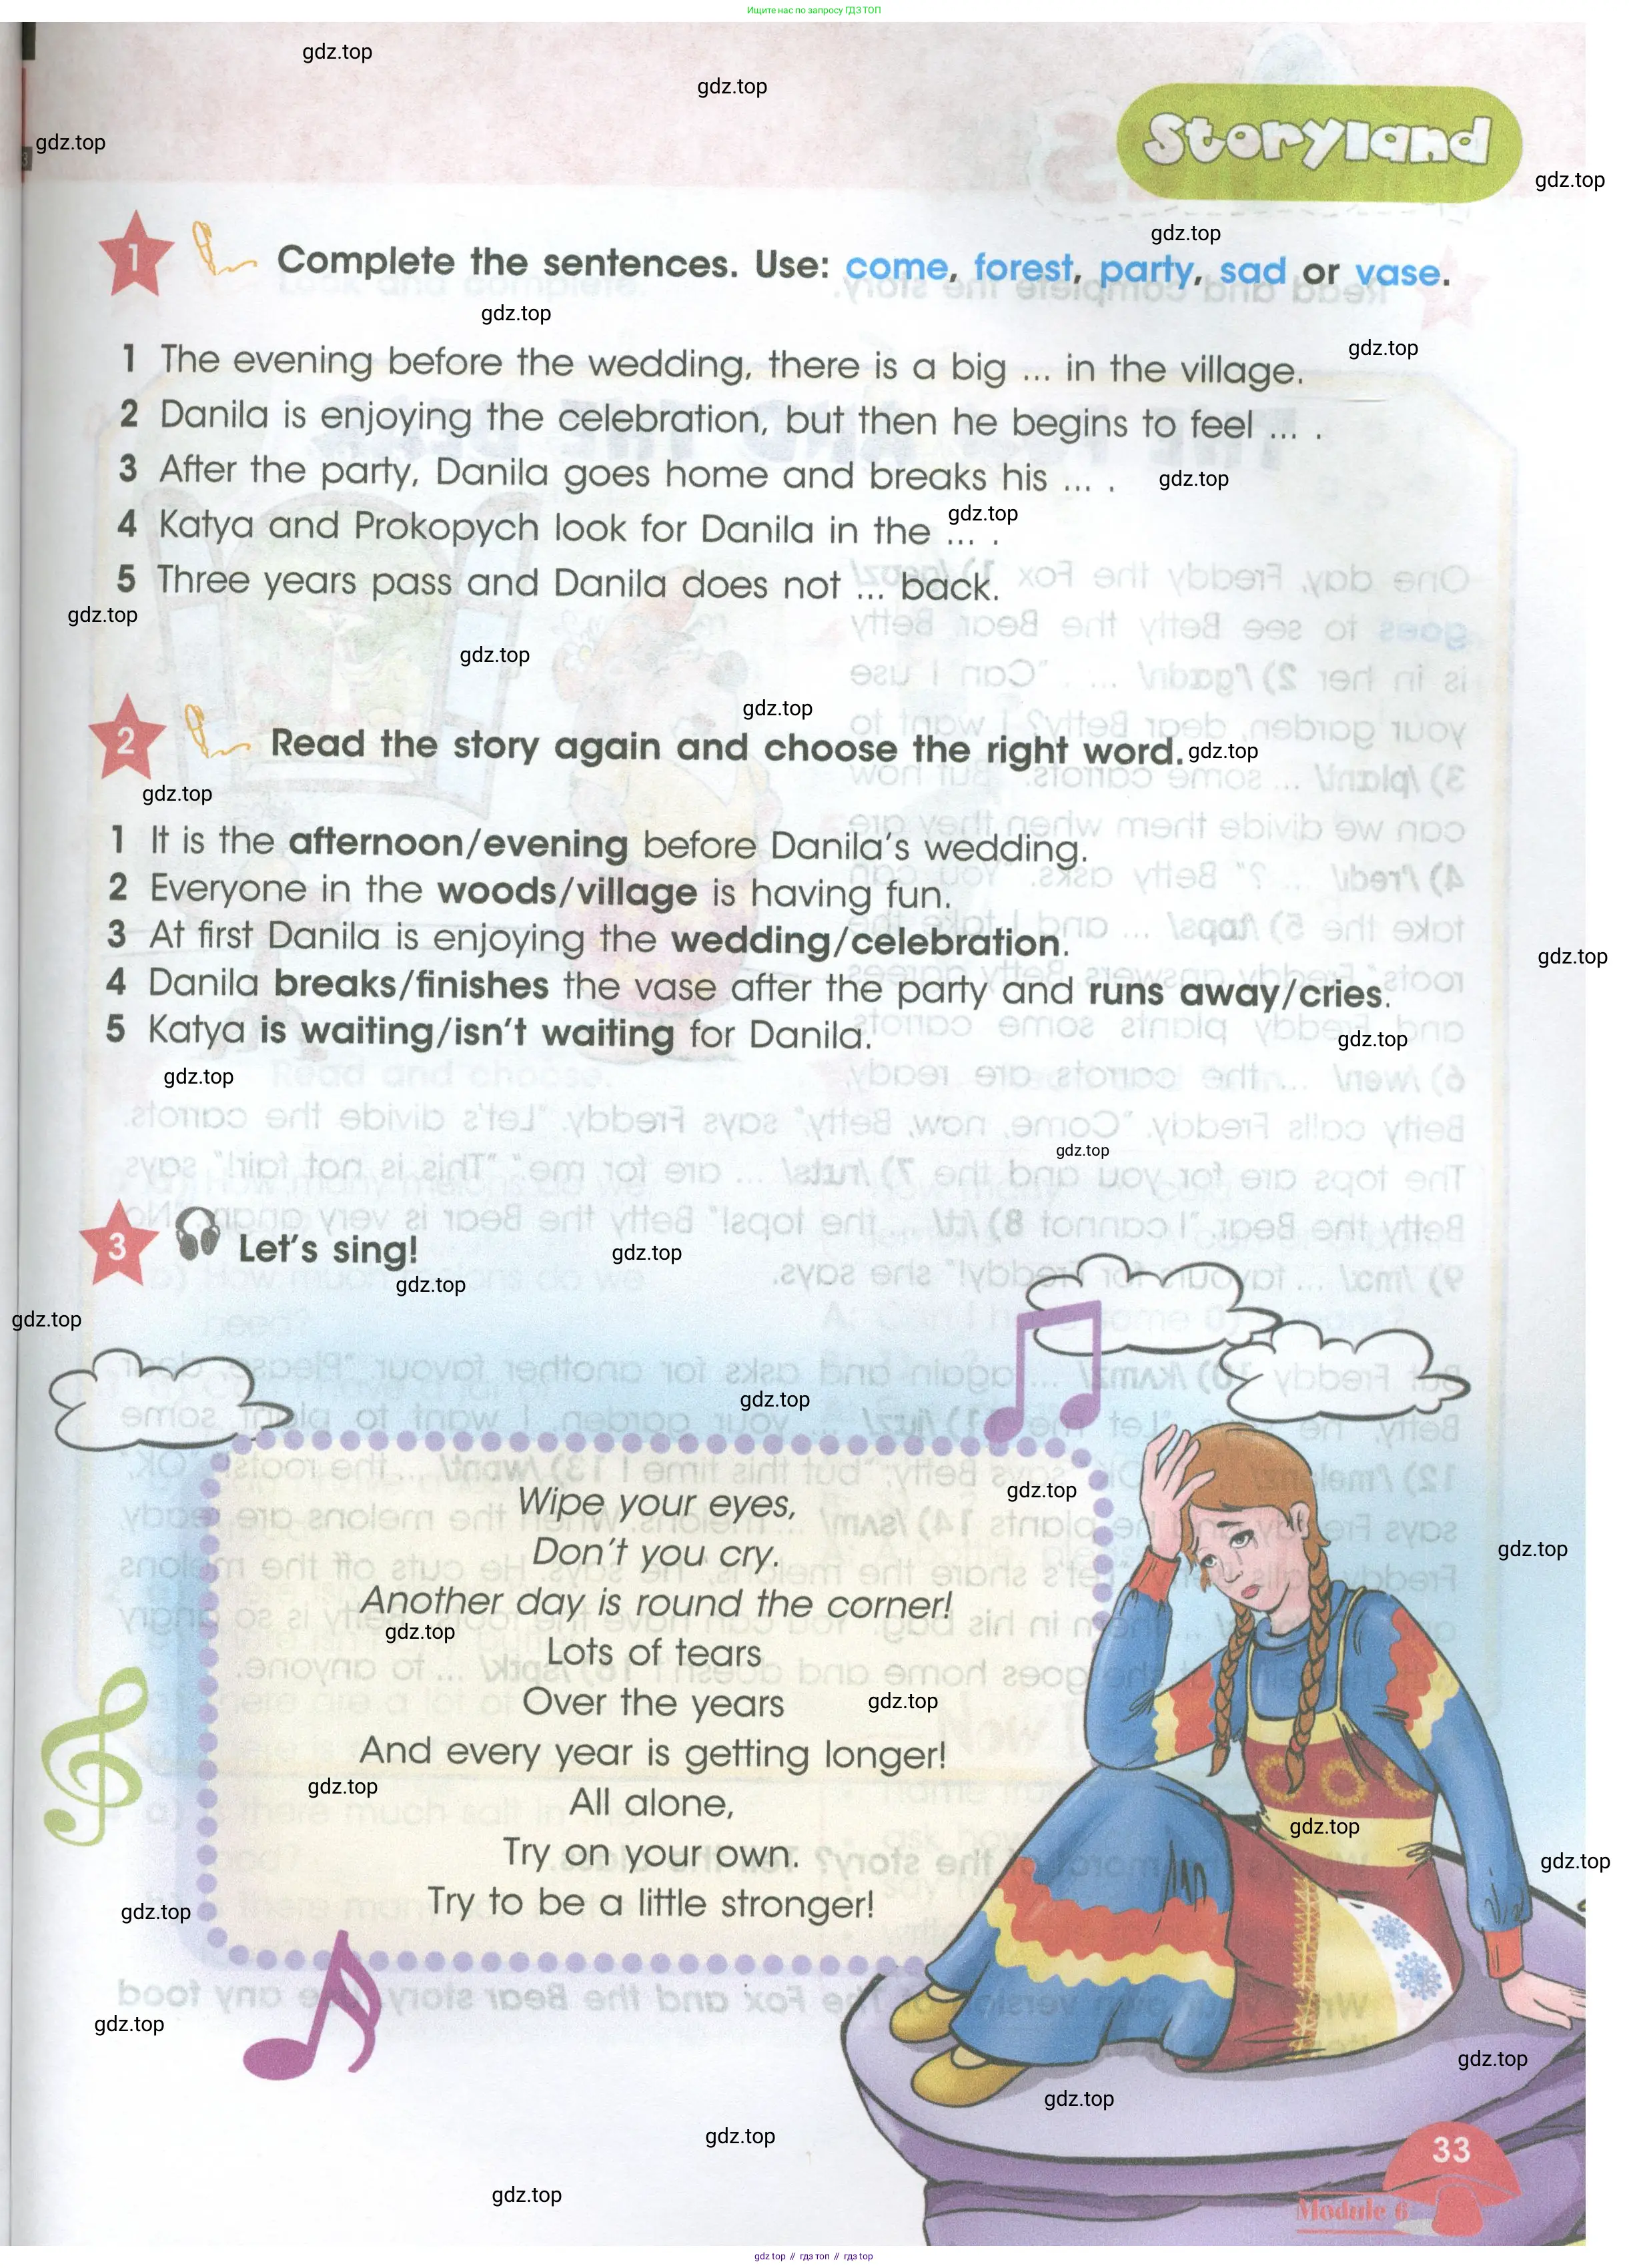 Ищите нас по запросу ГДЗ ТОП
gdz.top
gdz.top
gdz.top
Storyland
gdz.top
gdz.top
1 Complete the sentences. Use: come, forest, party, sad or vase.
gdz.top
gdz.top
1 The evening before the wedding, there is a big ... in the village.
2 Danila is enjoying the celebration, but then he begins to feel ... .
3 After the party, Danila goes home and breaks his ... .
gdz.top
gdz.top
4 Katya and Prokopych look for Danila in the ... .
5 Three years pass and Danila does not ... back.
gdz.top
gdz.top
gdz.top
2 Read the story again and choose the right word.
gdz.top
gdz.top
1 It is the afternoon/evening before Danila's wedding.
2 Everyone in the woods/village is having fun.
3 At first Danila is enjoying the wedding/celebration.
gdz.top
4 Danila breaks/finishes the vase after the party and runs away/cries.
5 Katya is waiting/isn't waiting for Danila.
gdz.top
gdz.top
gdz.top
3 Let's sing!
gdz.top
gdz.top
gdz.top
gdz.top
gdz.top
Wipe your eyes,
Don't you cry.
gdz.top
Another day is round the corner!
gdz.top
Lots of tears
Over the years
gdz.top
And every year is getting longer!
gdz.top
All alone,
gdz.top
Try on your own.
gdz.top
Try to be a little stronger!
gdz.top
gdz.top
gdz.top
gdz.top
gdz.top
33
gdz.top
Module 6
gdz top // гдз топ // гдз top